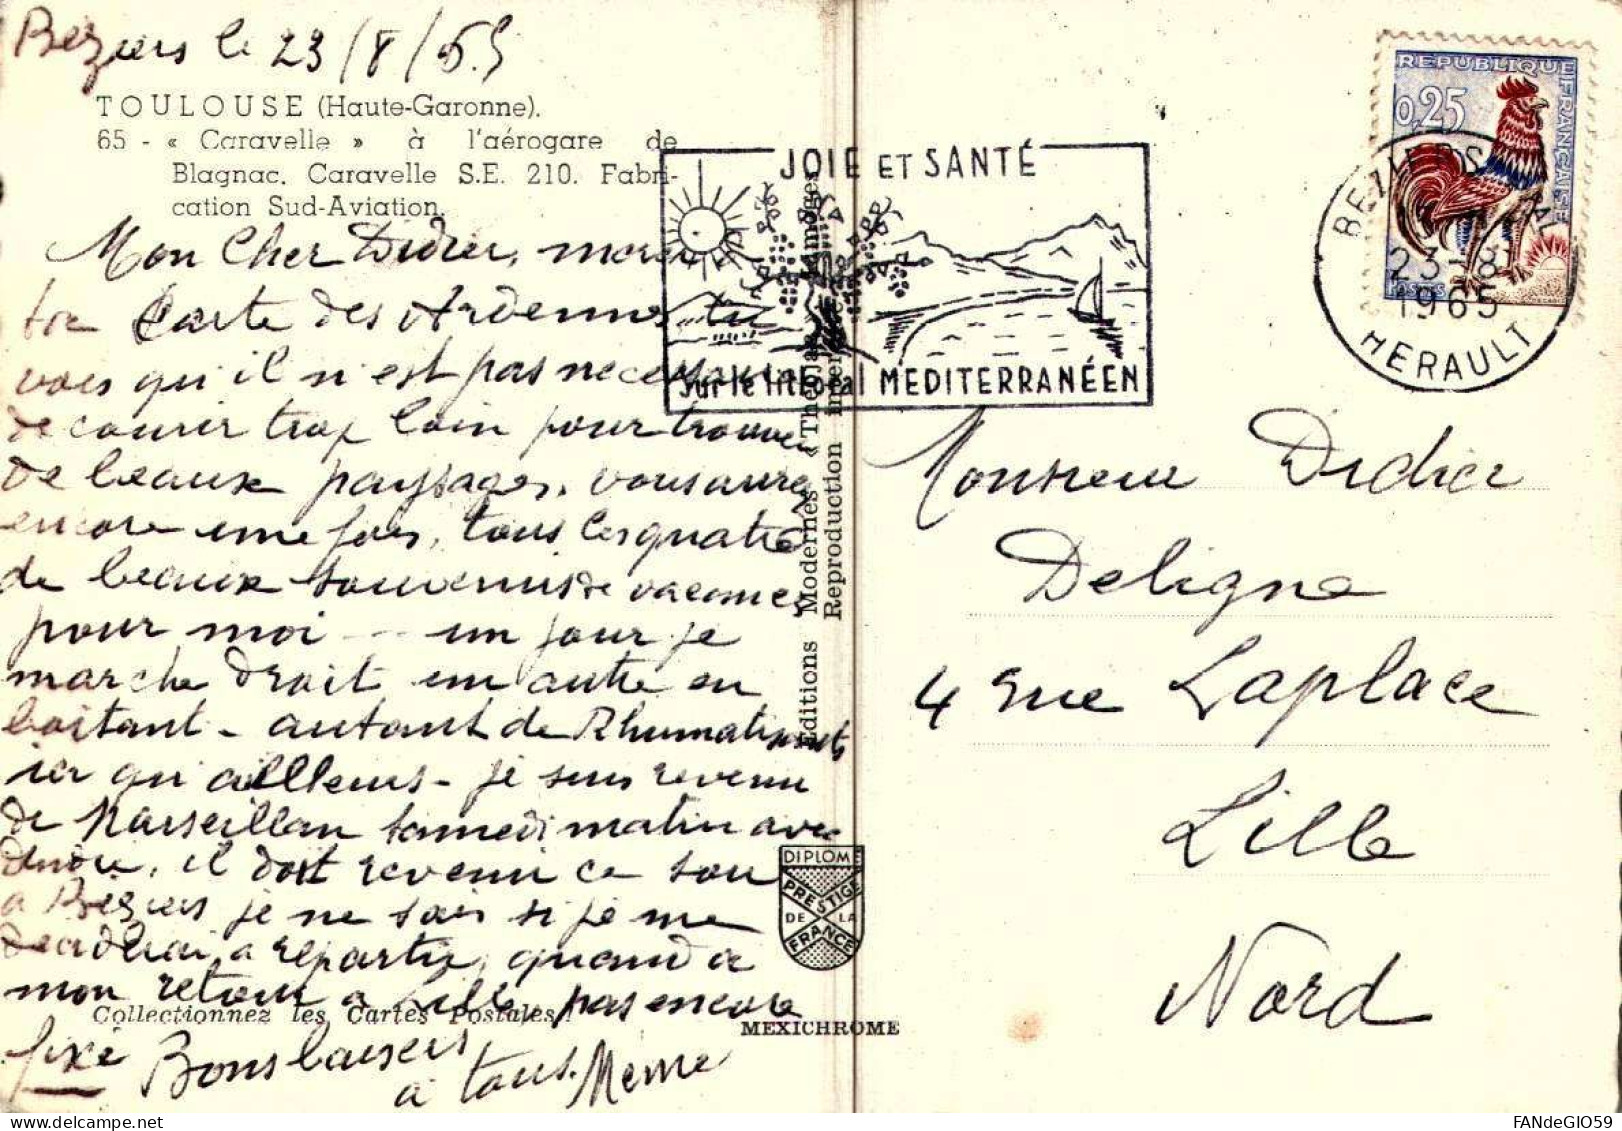 Beziers le 23/8/65
TOULOUSE (Haute-Garonne).
65 - « Caravelle » à l'aérogare de
Blagnac. Caravelle S.E. 210. Fabri-
cation Sud-Aviation.
Mon Cher Didier, merci
ta Carte des Ardennes tu
vois qu'il n'est pas necessaire
de courir trop loin pour trouver
de beaux paysages, vous aurez
encore une fois, tous les quatre
de beaux souvenirs de vacances
pour moi -- un jour je
marche droit un autre en
boitant - autant de Rhumatismes
ici qu'ailleurs - je suis revenu
de Marseillan samedi matin avec
il doit revenir ce soir
a Béziers je ne sais si je me
deciderai a repartir, quand a
mon retour a Lille, pas encore
fixé Bons baisers
a tous. Meme
Collectionnez les Cartes Postales !
Editions Modernes « Théojac » Limoges
Reproduction interdite
DIPLOME
PRESTIGE
DE LA
FRANCE
MEXICHROME
JOIE ET SANTÉ
sur le littoral MEDITERRANÉEN
REPUBLIQUE FRANÇAISE
0,25
POSTES
BEZIERS PAL
23-8
1965
HERAULT
Monsieur Didier
Deligne
4 rue Laplace
Lille
Nord
FANdeGIO59